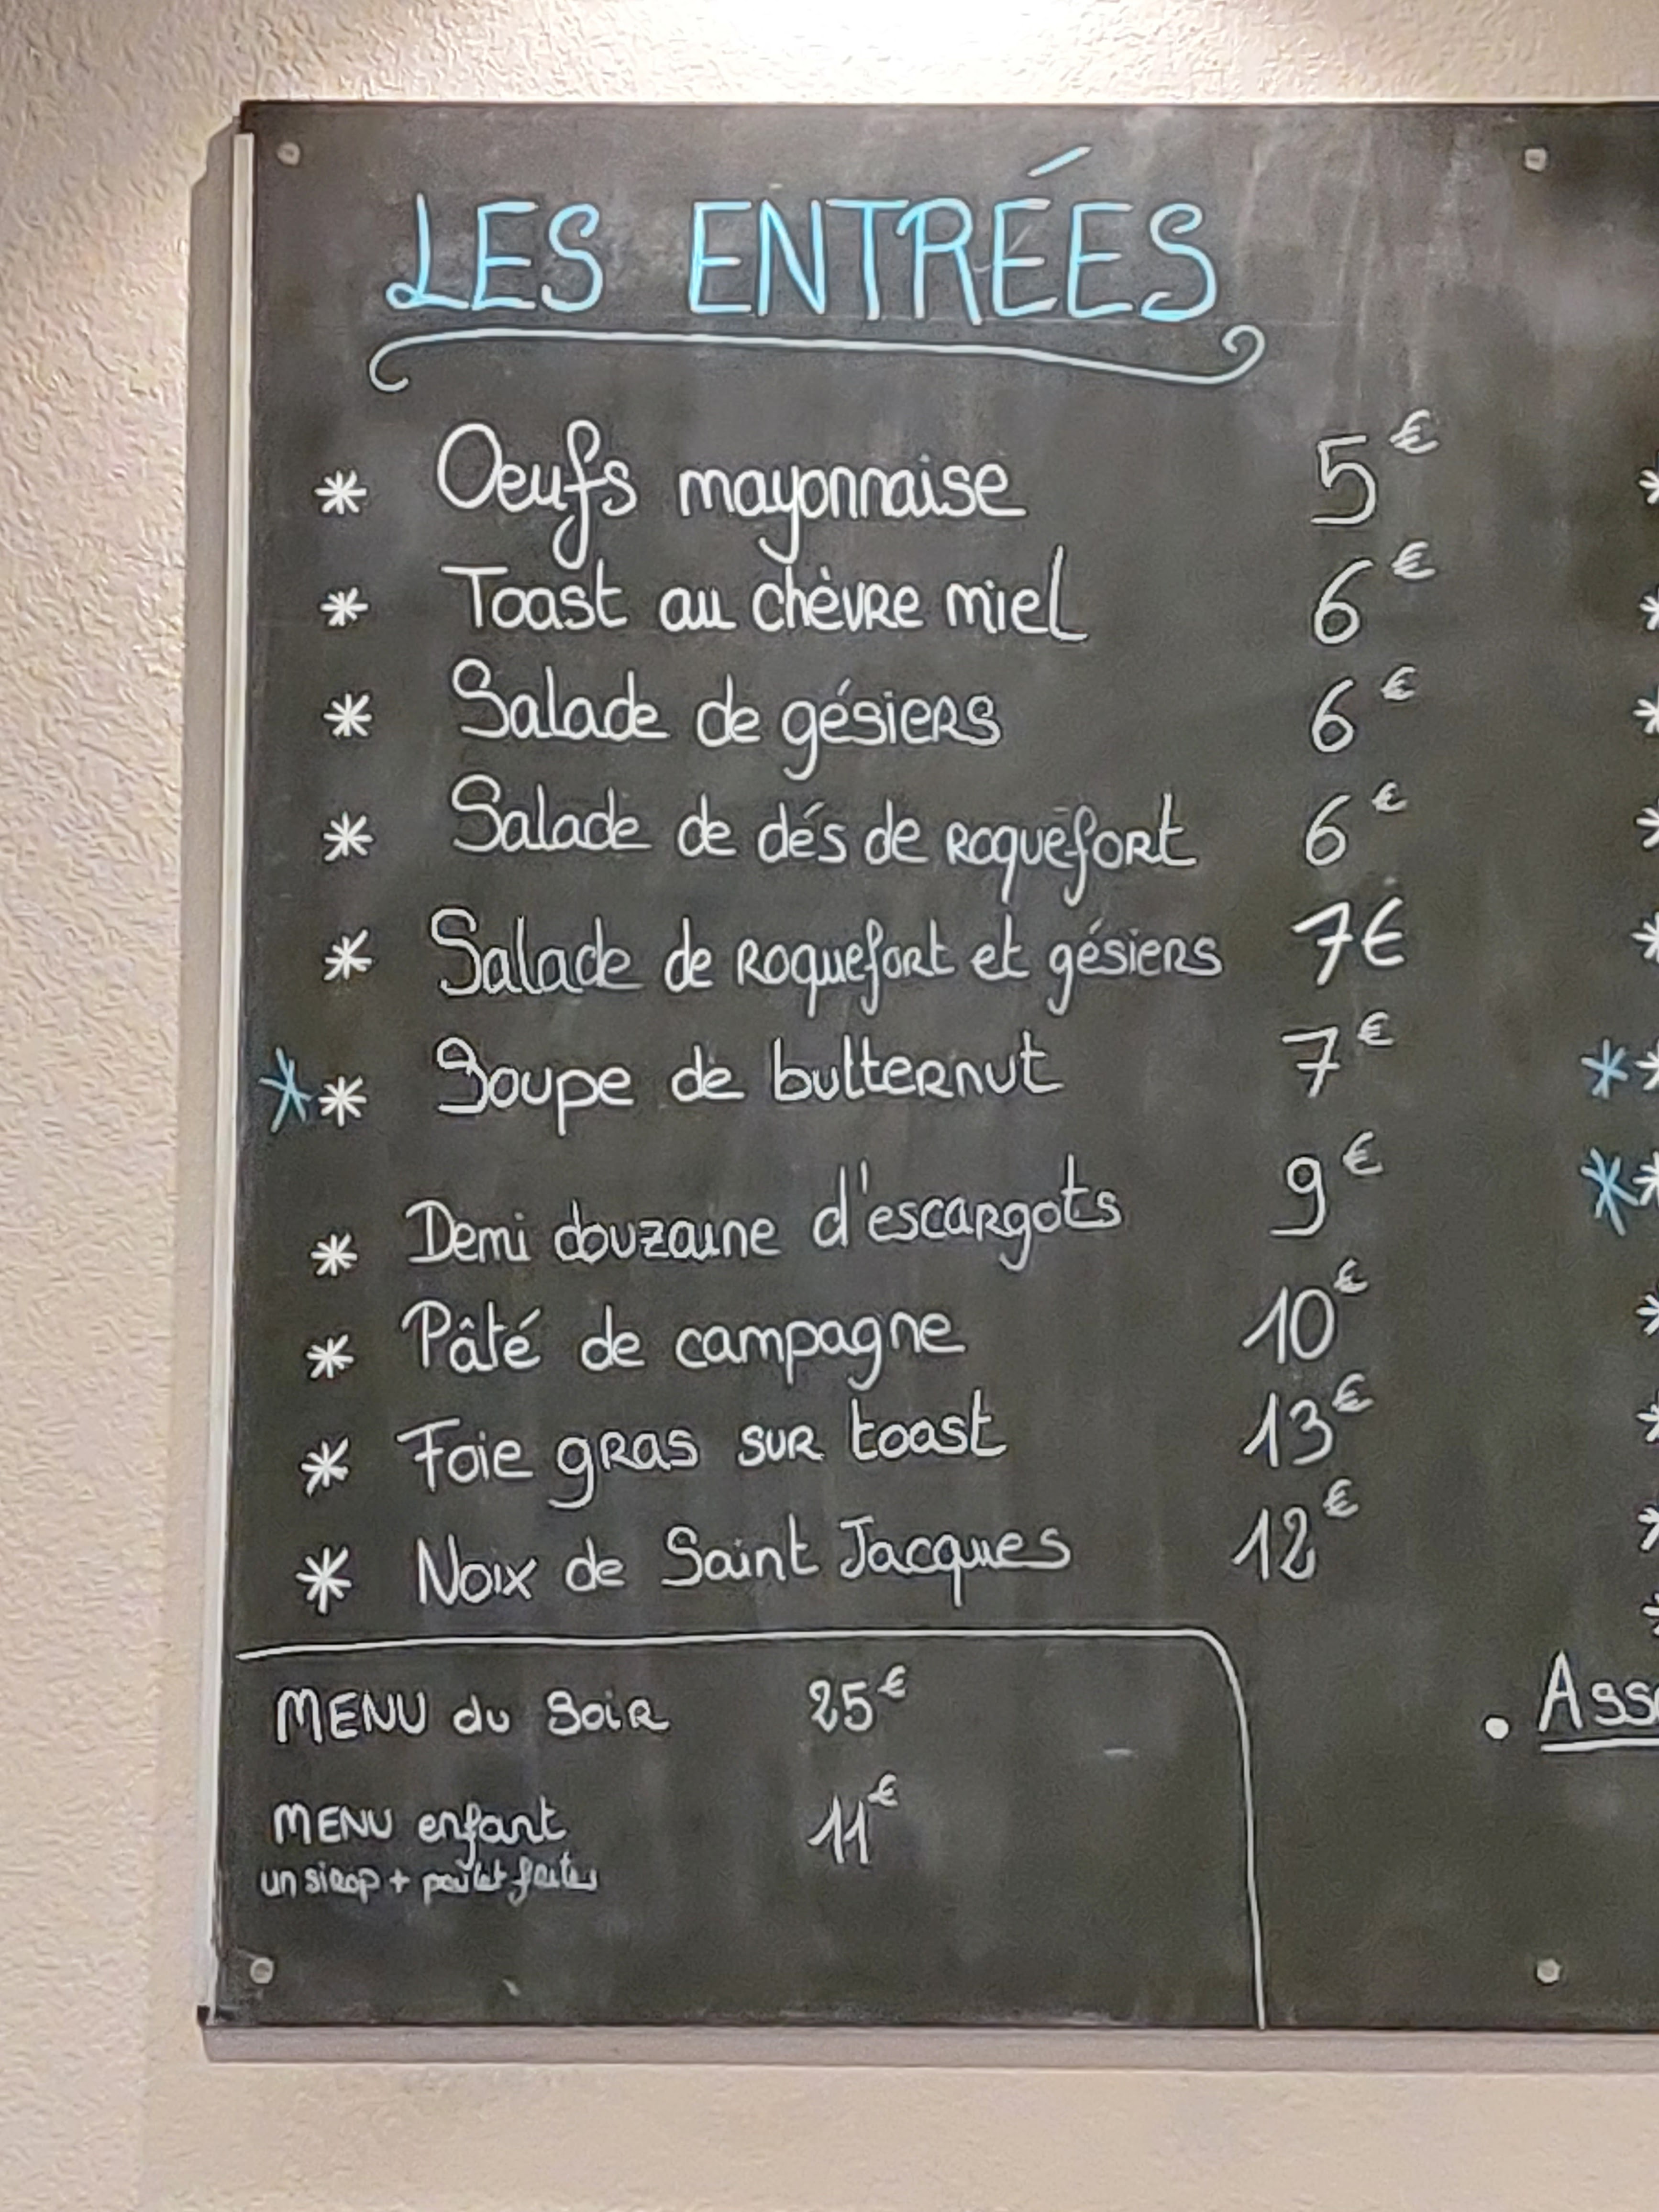 LES ENTRÉES
* Oeufs mayonnaise 5€
* Toast au chèvre miel 6€
* Salade de gésiers 6€
* Salade de dés de roquefort 6€
* Salade de roquefort et gésiers 7€
* * Soupe de butternut 7€
* Demi douzaine d'escargots 9€
* Pâté de campagne 10€
* Foie gras sur toast 13€
* Noix de Saint Jacques 12€
MENU du soir 25€
MENU enfant 11€
un sirop + poulet frites
• Ass